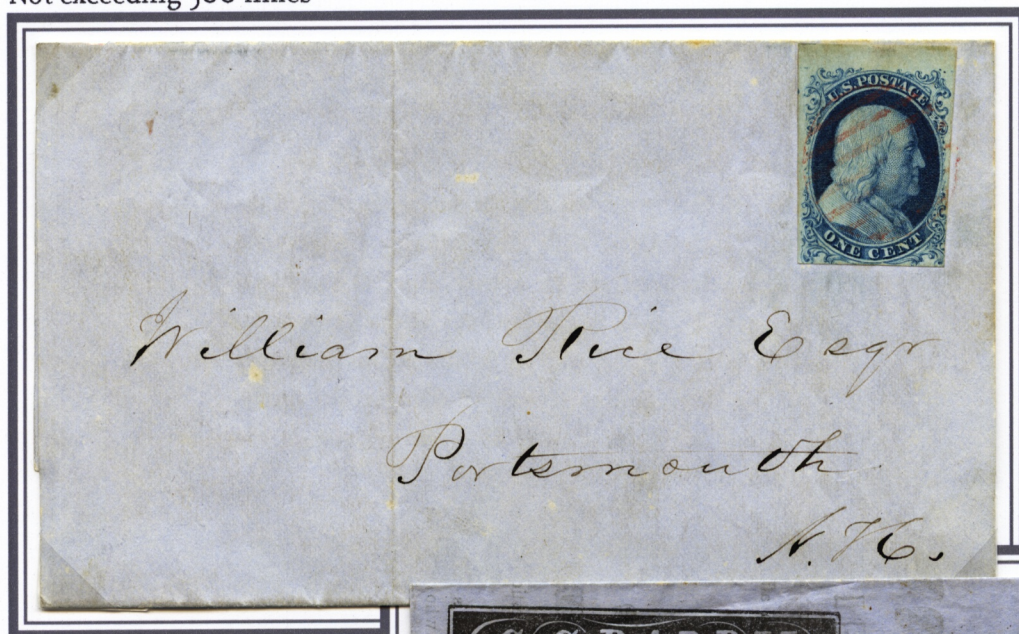 Not exceeding 500 miles
U.S. POSTAGE
ONE CENT
William Rice Esqr
Portsmouth
N.H.